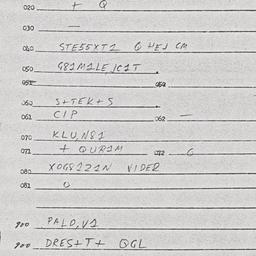 020 + Q
030 —
040 STE55XT1 QHEJ CM
050 G81M1LE,JC1T.
051 052
060 S+TEK+S
061 CIP 062 —
070 KLU,N81
071 + QUR1M 072 6
080 XOG81Z1N VIDER
081 0
900 PALO,V1
900 DRES+T+ QGL